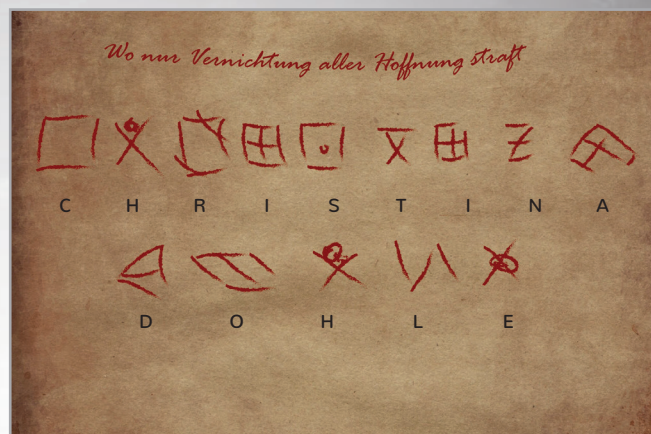 Wo nur Vernichtung aller Hoffnung straft
C H R I S T I N A
D O H L E